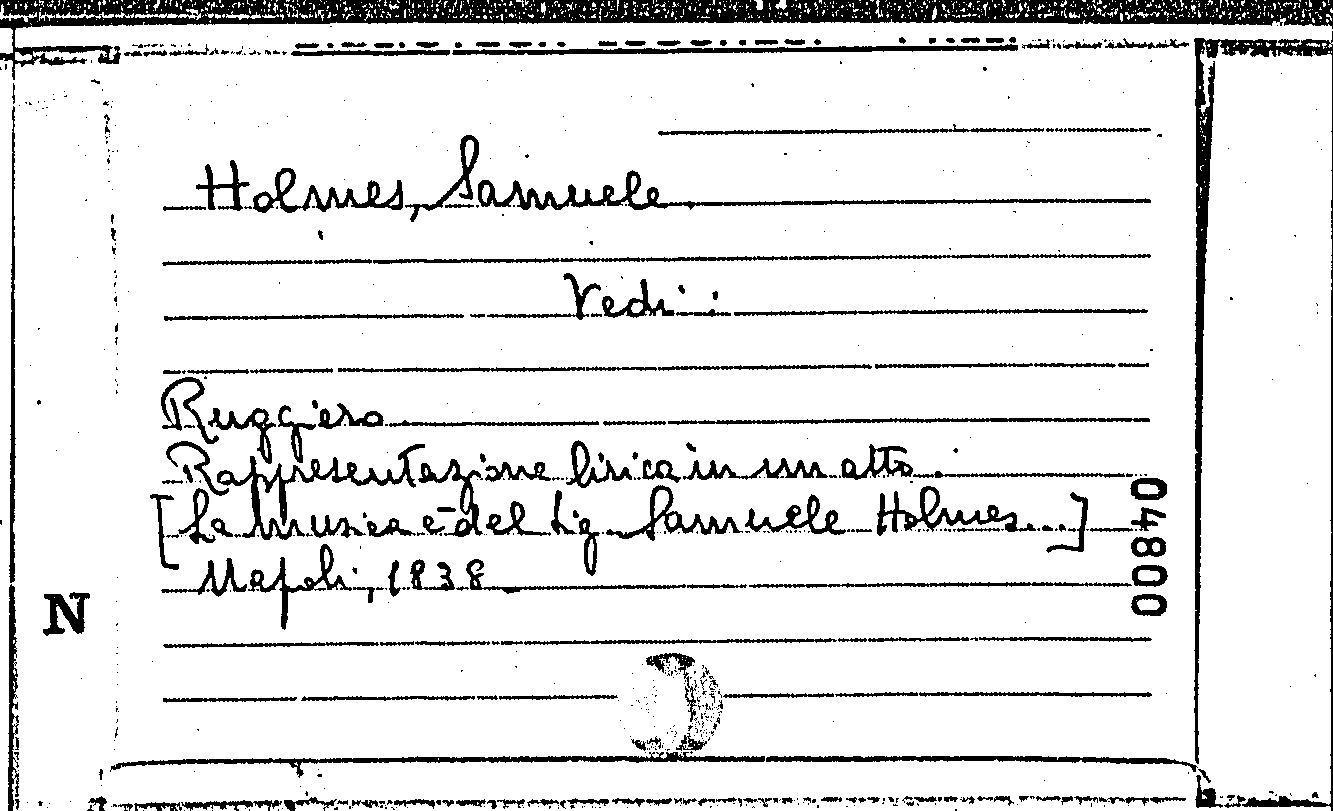 Holmes, Samuele.
Vedi:
Ruggiero
Rappresentazione lirica in un atto.
[La musica è del Sig. Samuele Holmes...]
Napoli, 1838.
04800
N